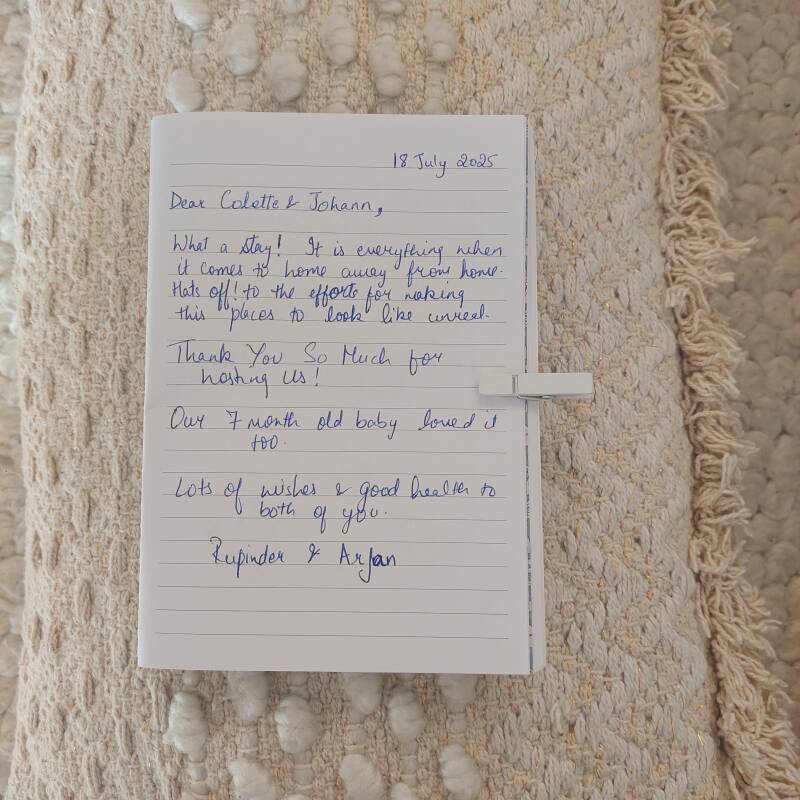 18 July 2025
Dear Colette & Johann,
What a stay! It is everything when
it comes to home away from home.
Hats off! to the efforts for making
this places to look like unreal.
Thank You So Much for
hosting Us!
Our 7 month old baby loved it
too.
Lots of wishes & good health to
both of you.
Rupinder & Arjan